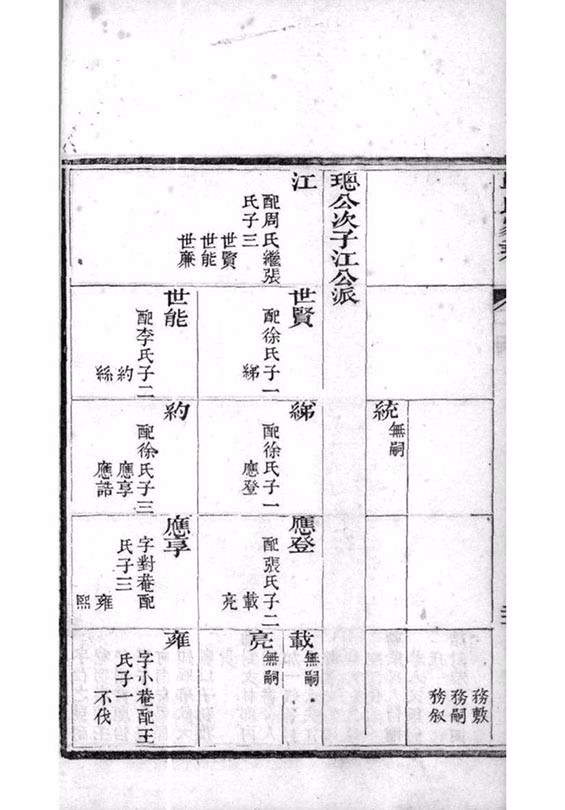 璁公次子江公派
江
配周氏繼張
氏子三
世賢
世能
世廉
世賢
配徐氏子一
綈
世能
配李氏子二
約
絲
統
無嗣
綈
配徐氏子一
應登
約
配徐氏子三
應享
應誥
應登
配張氏子二
載
亮
應享
字對菴配
氏子三
雍
熙
務敷
務嗣
務叙
載
無嗣
亮
無嗣
雍
字小菴配王
氏子一
不伐